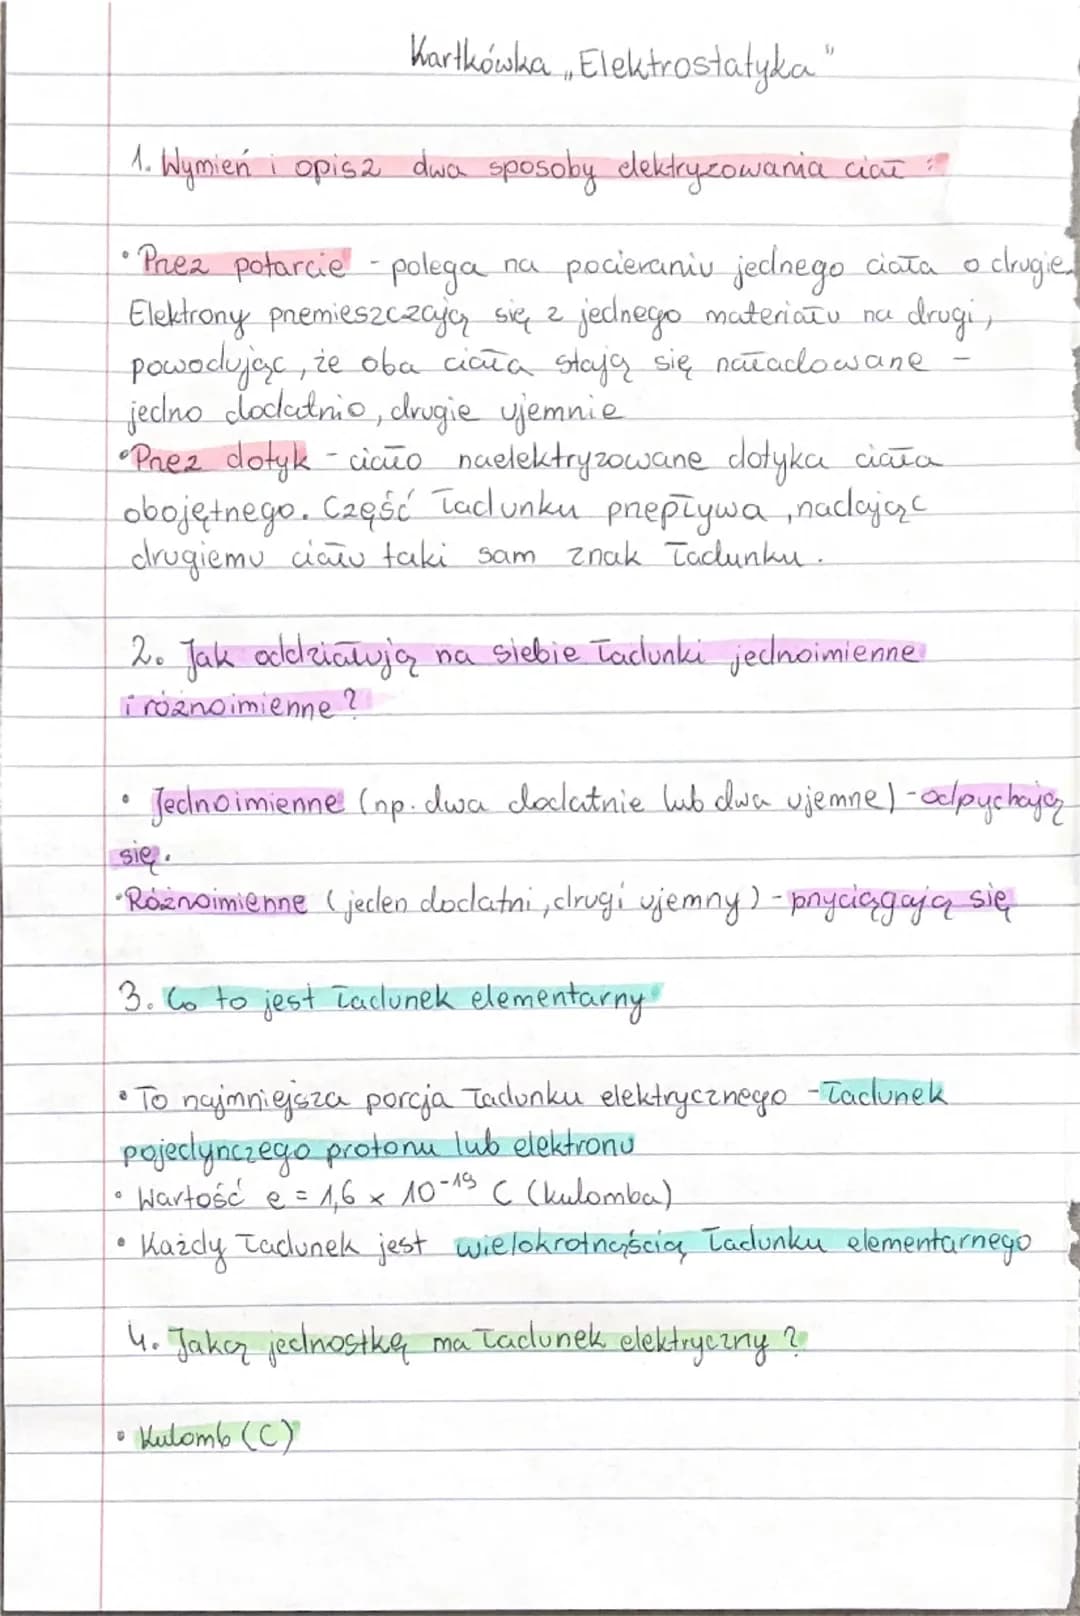 Kartkówka „Elektrostatyka"
1. Wymień i opisz dwa sposoby elektryzowania ciał :
• Przez potarcie - polega na pocieraniu jednego ciała o drugie.
Elektrony przemieszczają się z jednego materiału na drugi,
powodując, że oba ciała stają się naładowane -
jedno dodatnio, drugie ujemnie
• Przez dotyk - ciało naelektryzowane dotyka ciała
obojętnego. Część ładunku przepływa, nadając
drugiemu ciału taki sam znak ładunku.
2. Jak oddziałują na siebie ładunki jednoimienne
i różnoimienne?
• Jednoimienne (np. dwa dodatnie lub dwa ujemne) - odpychają
się.
• Różnoimienne (jeden dodatni, drugi ujemny) - przyciągają się
3. Co to jest ładunek elementarny
• To najmniejsza porcja ładunku elektrycznego - ładunek
pojedynczego protonu lub elektronu
• Wartość e = 1,6 x 10⁻¹⁹ C (kulomba)
• Każdy ładunek jest wielokrotnością ładunku elementarnego
4. Jaką jednostkę ma ładunek elektryczny?
• Kulomb (C)